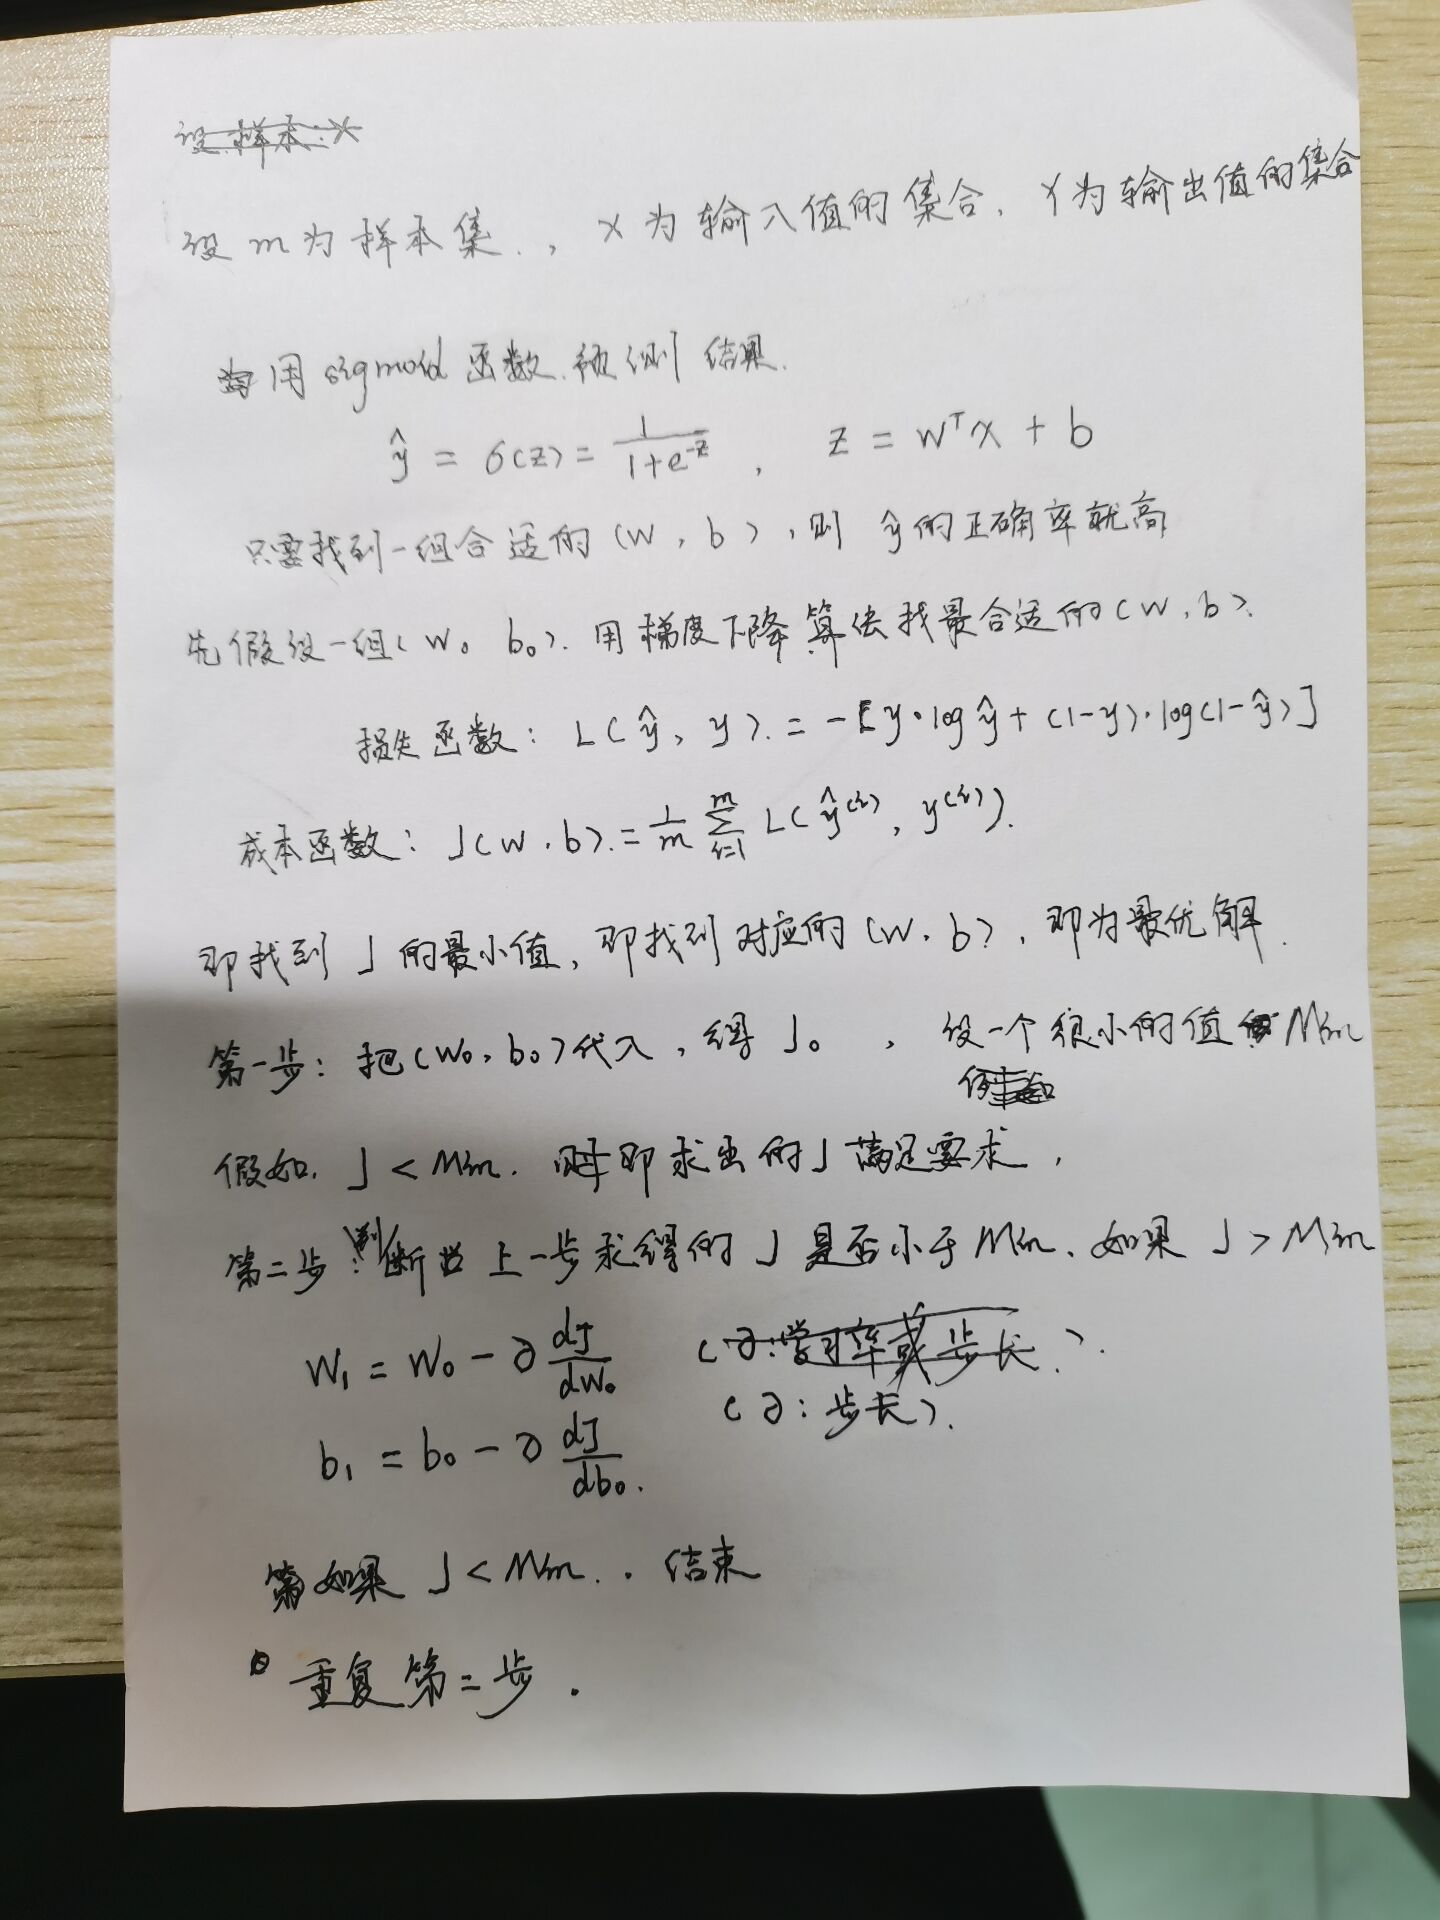 设样本:X
设m为样本集., X为输入值的集合, Y为输出值的集合
用sigmoid函数.预测结果.
ŷ = σ(z) = 1/(1+e^-z) , z = w^T x + b
只需找到一组合适的(w, b),则 ŷ的正确率就高
先假设一组(w₀ b₀).用梯度下降算法找最合适的(w, b).
损失函数: L(ŷ, y). = -[y·log ŷ + (1-y)·log(1-ŷ)]
成本函数: J(w, b).= 1/m ∑_{i=1}^{m} L(ŷ^(i), y^(i)).
即找到J的最小值,即找到对应的(w, b),即为最优解.
第一步:把(w₀, b₀)代入,得J₀ , 设一个很小的值 Min
例如
假如, J < Min. 即求出的J满足要求,
第二步:判断 上一步求得的J是否小于Min. 如果 J > Min
w₁ = w₀ - ∂ dJ/dw₀ (∂:学习率或步长).
(∂:步长).
b₁ = b₀ - ∂ dJ/db₀.
如果J < Min. . 结束
重复第二步.